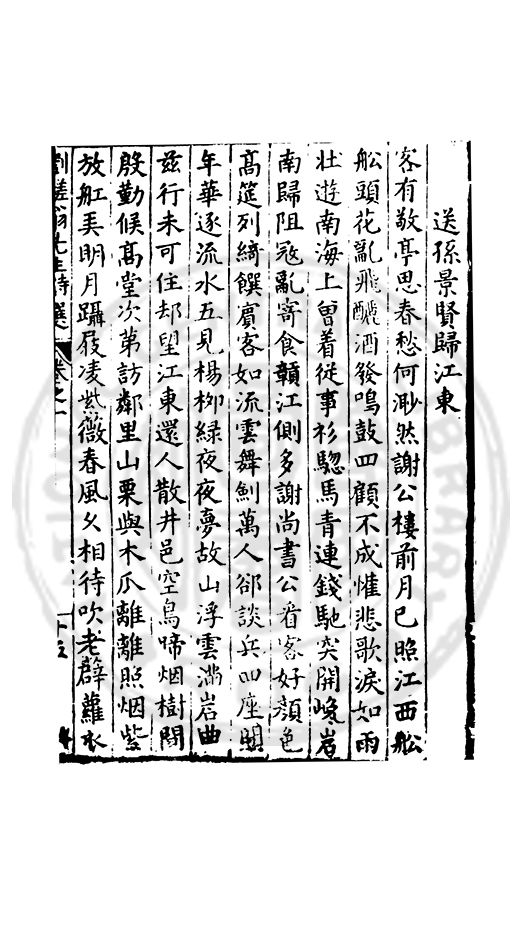 送孫景賢歸江東
客有敬亭思春愁何渺然謝公樓前月已照江西船
船頭花亂飛釃酒發鳴鼓四顧不成懽悲歌淚如雨
壯遊南海上曾着從事衫驄馬青連錢馳突開巉岩
南歸阻寇亂寄食贛江側多謝尚書公看客好顏色
高筵列綺饌賓客如流雲舞劍萬人卻談兵四座聞
年華逐流水五見楊柳綠夜夜夢故山浮雲滿岩曲
茲行未可住却望江東還人散井邑空鳥啼烟樹間
殷勤候高堂次第訪鄰里山栗與木瓜離離照烟紫
放舡弄明月躡屐凌紫薇春風久相待吹老薜蘿衣
先生詩選 卷之一 十五